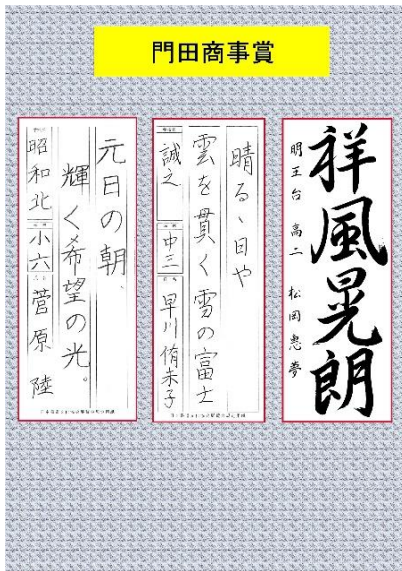 門田商事賞
祥風晃朗
明王台 高二 松岡恵夢
晴るゝ日や
雲を貫く雪の富士
誠之 中三 早川侑未子
元日の朝、
輝く希望の光。
昭和北 小六 菅原陸